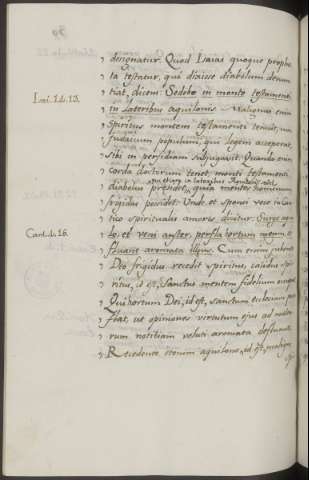 designatur. Quod Isaias quoque prophe
ta testatur, qui dixisse diabolum denun
tiat, dicens: Sedebo in monte testamenti
Isai. 14. 13.
in lateribus aquilonis. Malignus enim
spiritus montem testamenti tenuit, cum
Judaicum populum, qui legem acceperat,
sibi in perfidiam subjugavit. Quando enim
corda doctorum tenet, monti testamenti
diabolus præsidet, quia mentes hominum
frigidas possidet. Unde et Sponsi voce in Can
tico spiritualis amoris dicitur: Surge aqui
Cant. 4. 16.
lo, et veni auster, perfla hortum meum, et
fluant aromata illius. Cum enim jubente
Deo frigidus recedit spiritus, calidus spi
ritus, id est, Sanctus mentem fidelium
Qui hortum Dei, id est, sanctam ecclesiam
flat, ut opiniones virtutum ejus ad
rum notitiam veluti aromata defluant.
Recedente etenim aquilone, id est, maligno